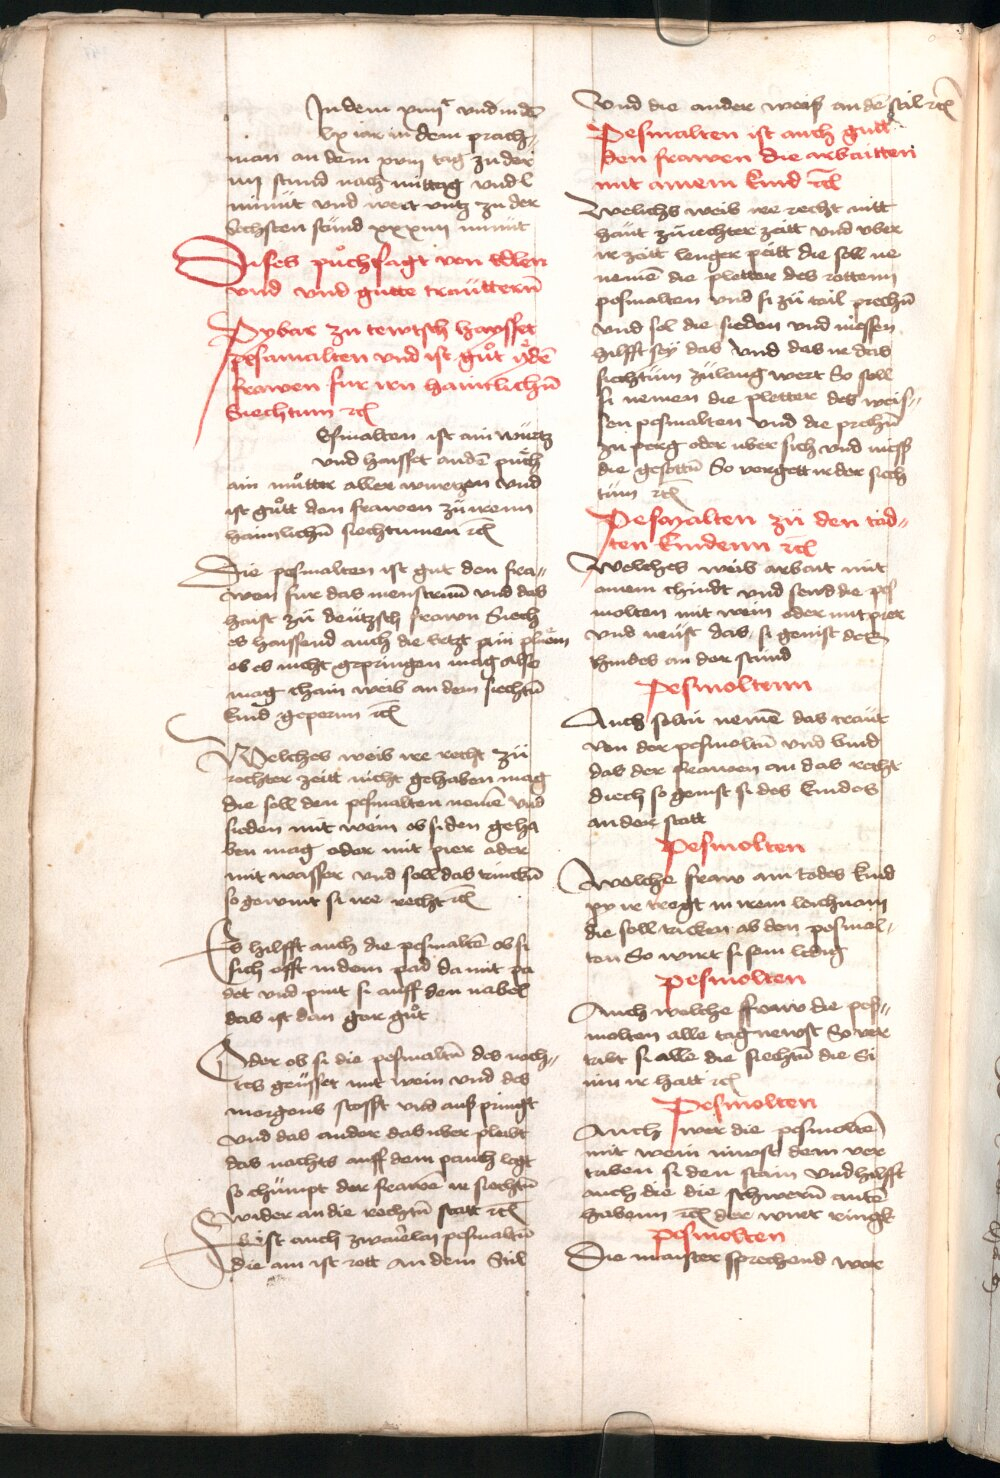 In dem xiiii c vnd in dē
lx iar in dem prach-
man an dem xviii tag zu der
iiii stund nach mittag vnd l
minut vnd wert vntz zu der
Sechsten stund xxxiiii minut
Dises puͦch sagt von Edlen
vnd vnd gutte kraͤutternn
Pybar zu tewtsch haysset
pesamalten vnd ist guͦt ydē
frawen fur irn haimlichn̄
Siechtum ꝛc
Esmalten ist ain wurtz
vnd haisset an den puͤch
ain muͦtter aller wurtzen vnd
ist guͦtt den frawen zu irenn
haimlichn̄ siechtumen ꝛc
Die pesmalten ist gut den fra-
wen fur das menstruū vnd das
haist zu deutzsch frawn Siech
es haissend auch die Ertzt ain pluem
ob es nicht gepringen mag Also
mag chain weib an dem siechtū
kind geperun ꝛc
Welches weib ire recht zu
rechter zeitt nicht gehaben mag
die soll den pesmalten nemē vnd
sieden mit wein ob si den geha
ben mag oder mit pier oder
mit wasser vnd soll das trinckn̄
so gewint si ire recht ꝛc
Es hilfft auch die pesmaltē ob si
sich offt in dem pad da mit pa
det vnd pint si auff den nabel
das ist dan gar guͦt
Oder ob si die pesmaltn̄ des nach-
tes geusset mit wein vnd des
morgens stosst vnd auß pringt
vnd das ander das vber pleibt
das nachts auff dem pauch legt
so chumpt der frawē ir siechtū
wider an die rechtn̄ statt ꝛc
Es ist auch zwaierlai pesmaltn̄
die ain ist rott an dem Stil
Vnd die ander weiß an dē stil ꝛc
Pesmalten ist auch gutt
den frawen die arbaitten
mit ainem kind ꝛc
Welichs weib ire recht nitt
haut zu rechter zeitt vnd vber
ir zeitt lenger peitt die soll ne
nemē die pletter des rottenn
pesmalten vnd si zu tail prechn̄
vnd sol die sieden vnd niessen
hilfft sy das vnd das ir das
siechtum zu lang wert So soll
si nemen die pletter des weis-
sen pesmalten vnd die prechn̄
zu perg oder vber sich vnd niess
die gesottn̄ So vergett ir der siech
tum ꝛc
Pesmalten zu den tod-
ten kindenn ꝛc
Welches weib arbait mit
ainem chindt vnd send die pes
molten mit wein oder mit pier
vnd neust das si genist des
kindes an der stund
Pesmoltenn
Auch soltu nemē das kraut
von der pesmoltn̄ vnd bind
das der frawen an das recht
diech so genist si des kindes
an der statt
Pesmolten
Welche fraw ain todes kind
py ir tregt in irem leichnam
die soll trincken ab den pesmol-
ten So wirt si sein ledig
pesmolten
Auch welche fraw die pes-
molten alle tag newst So ver
treibt si alle die siechtū die Si
inn ir hatt ꝛc
Pesmolten
Auch wer die pesmoltē
mit wein niwst dem ver
treben si den stain vnd hilfft
auch die die schwerū
habenn ꝛc der wirt ringk
pesmolten
Die maister sprechend wer